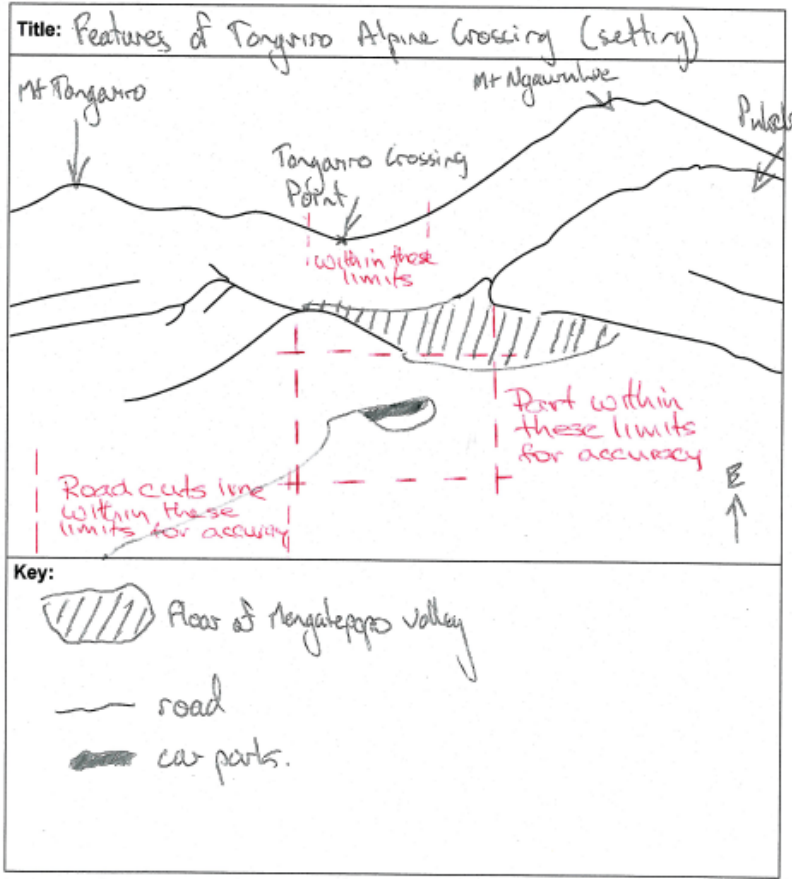 Title: Features of Tongriro Alpine Crossing (setting)
Mt Tongariro
Mt Ngauruhoe
Tongariro Crossing
Point
within these
limits
Part within
these limits
for accuracy
Road cuts line
within these
limits for accuracy
E
Key:
Floor of Mangatepopo Valley
road
car parks.